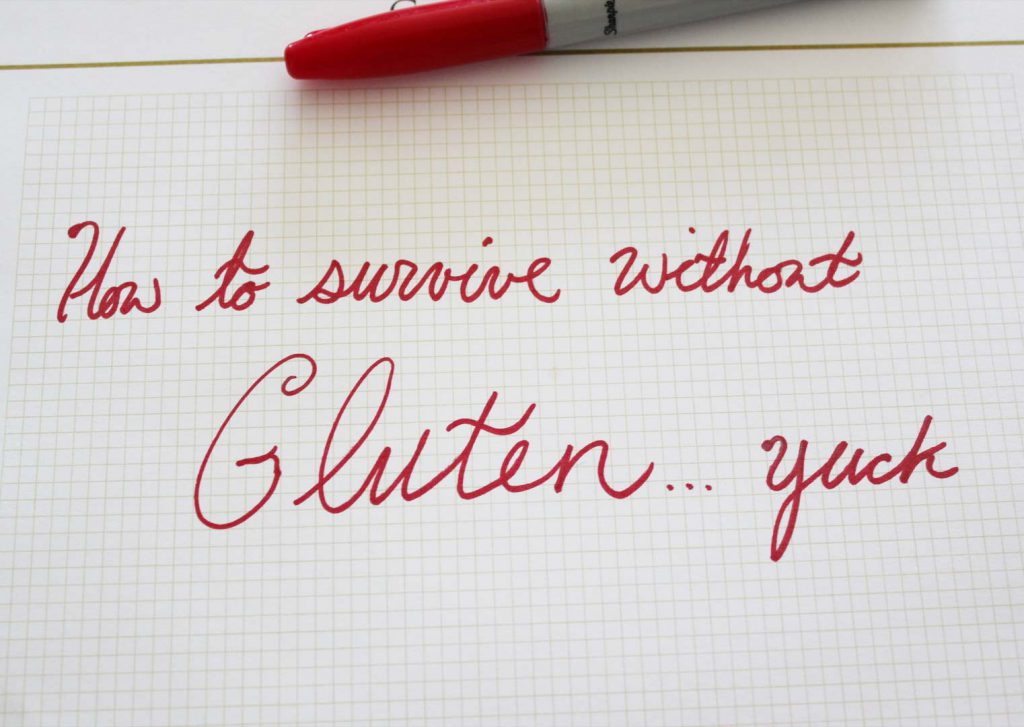 Sharpie
How to survive without
Gluten... yuck